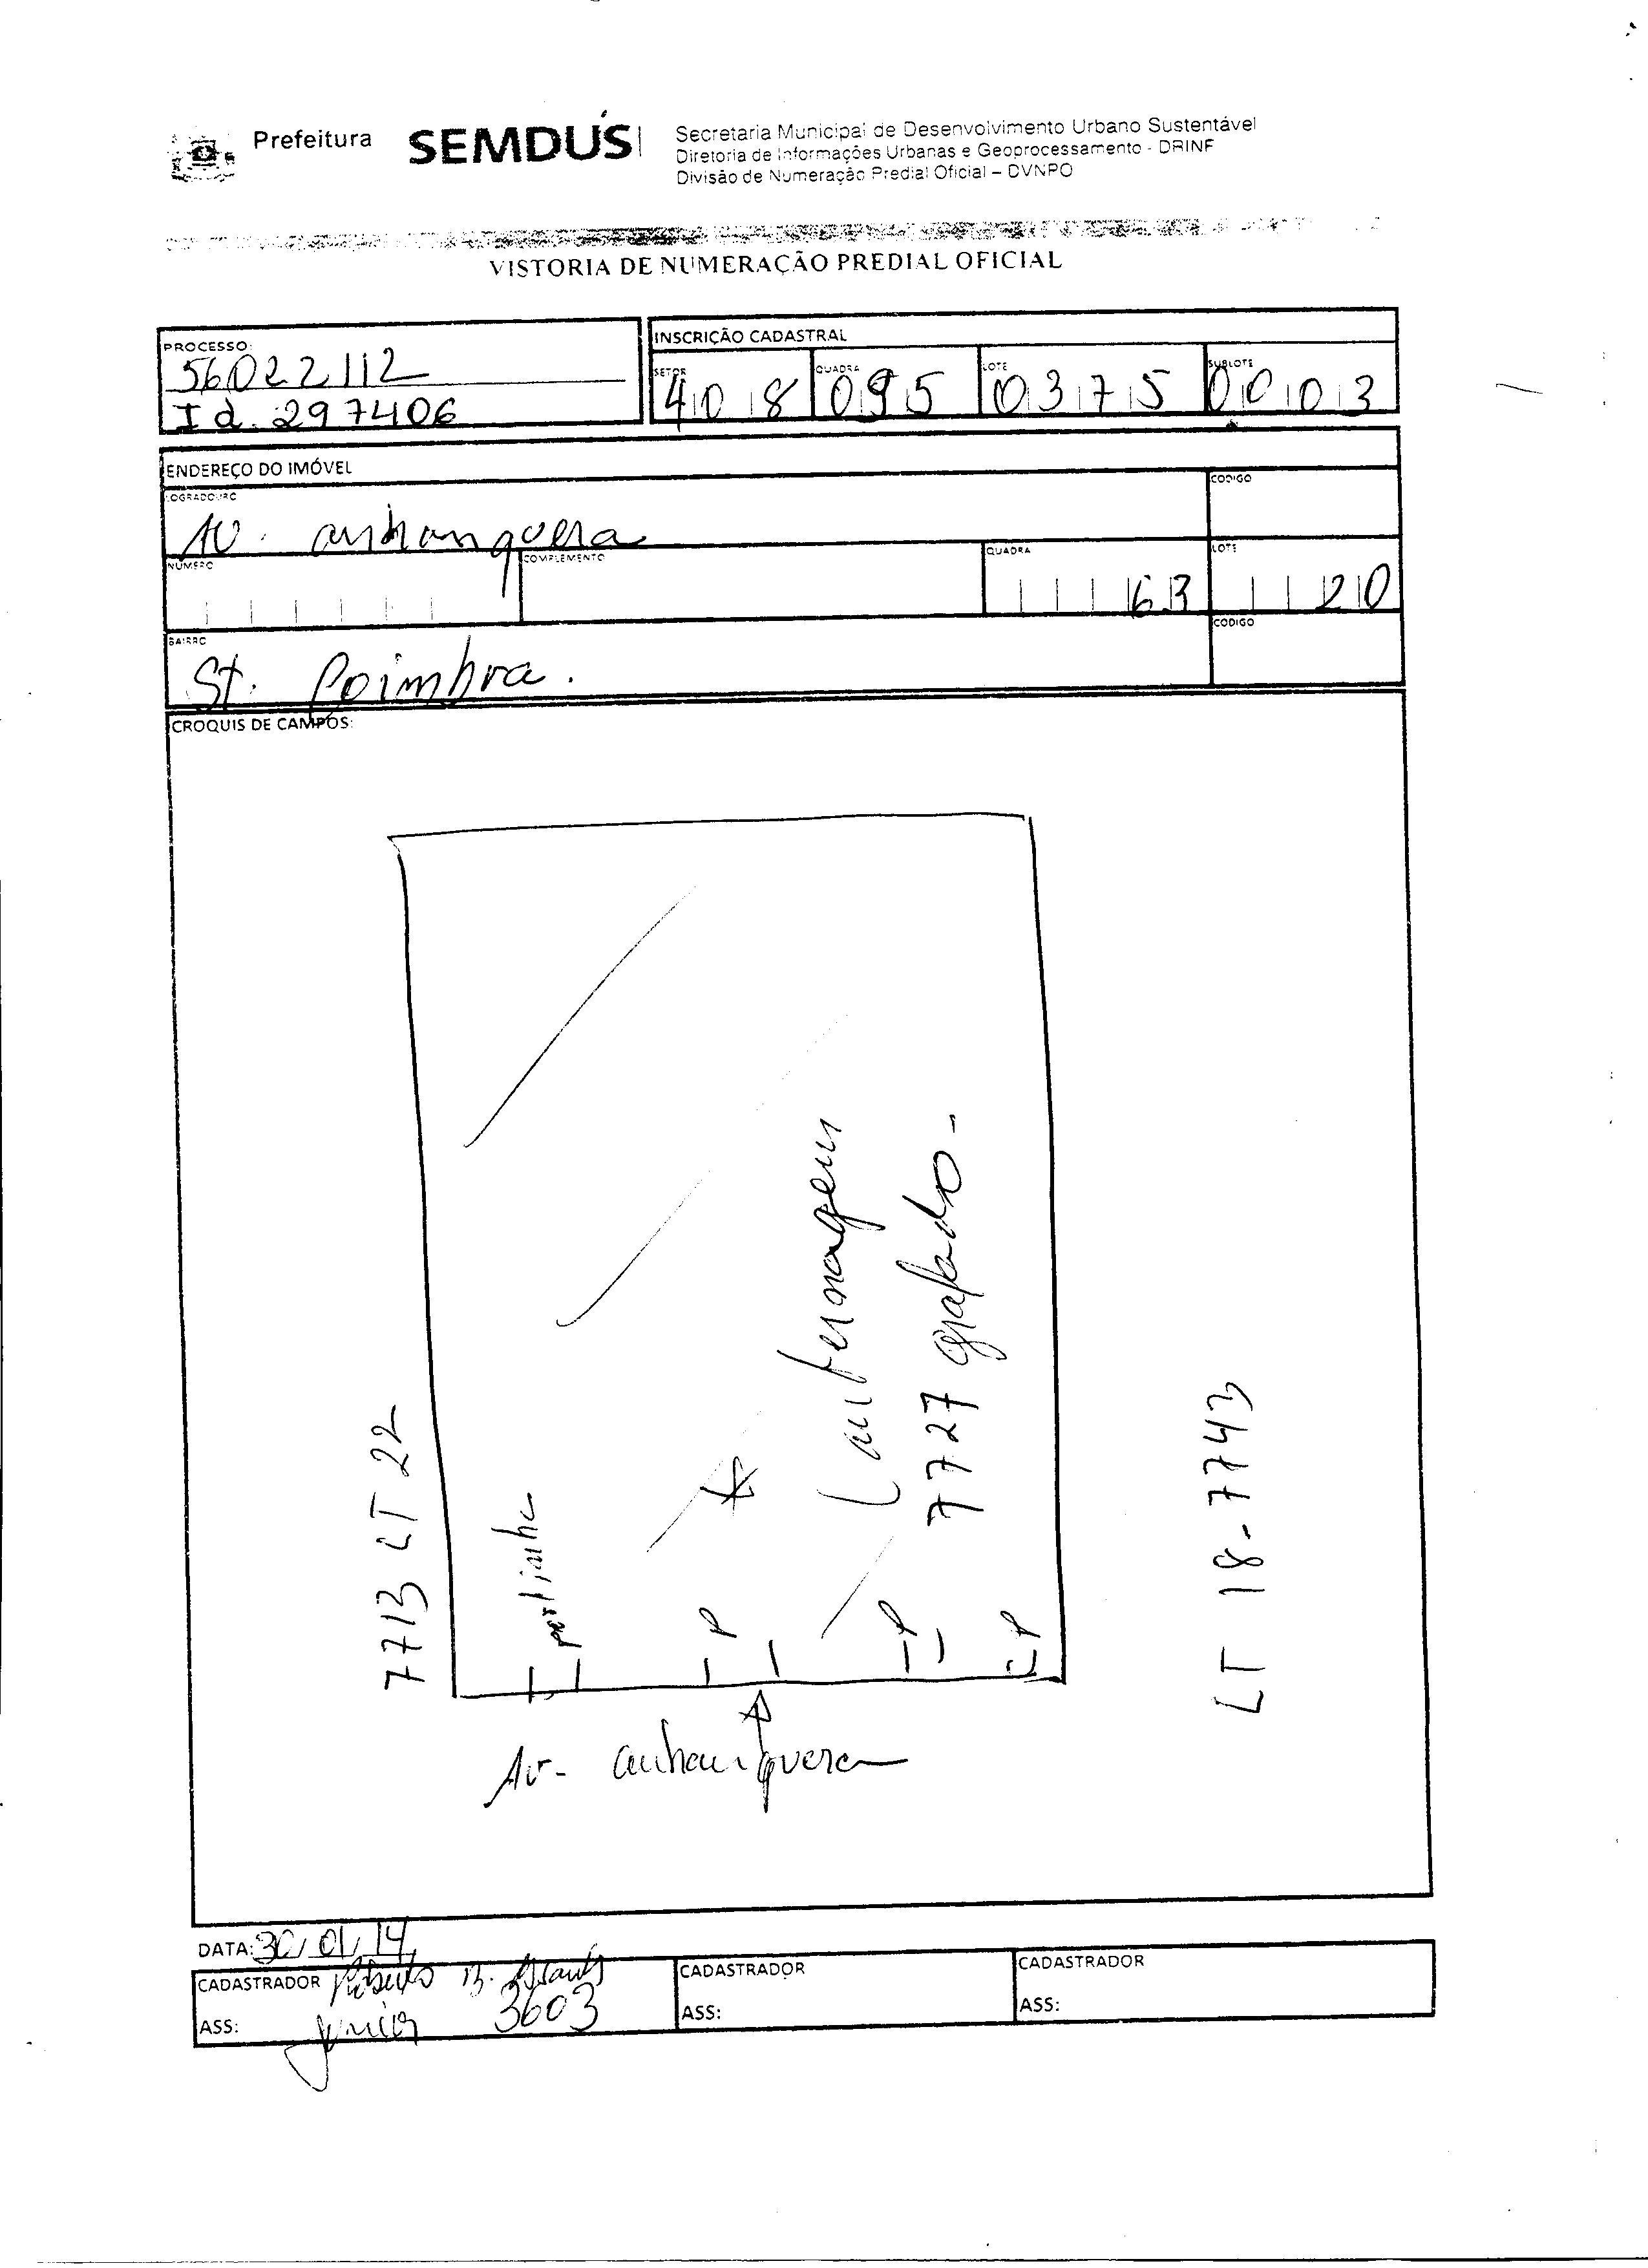 Prefeitura
SEMDUS
Secretaria Municipal de Desenvolvimento Urbano Sustentável
Diretoria de Informações Urbanas e Geoprocessamento - DRINF
Divisão de Numeração Predial Oficial – DVNPO
VISTORIA DE NUMERAÇÃO PREDIAL OFICIAL
PROCESSO:
56022112
Id. 297406
INSCRIÇÃO CADASTRAL
SETOR 408 QUADRA 095 LOTE 0375 SUBLOTE 0003
ENDEREÇO DO IMÓVEL
LOGRADOURO
CODIGO
Av. anhanguera
NÚMERO
COMPLEMENTO
QUADRA 63
LOTE 20
BAIRRO
CODIGO
St. Coimbra.
CROQUIS DE CAMPOS:
7713 LT 22
portinha
P
Lanternagem
7727 grafado -
P
P
LT 18-7743
Av- anhanguera
DATA: 30/01/14
CADASTRADOR Roberto B.
ASS: Junior 3603
CADASTRADOR
ASS:
CADASTRADOR
ASS: